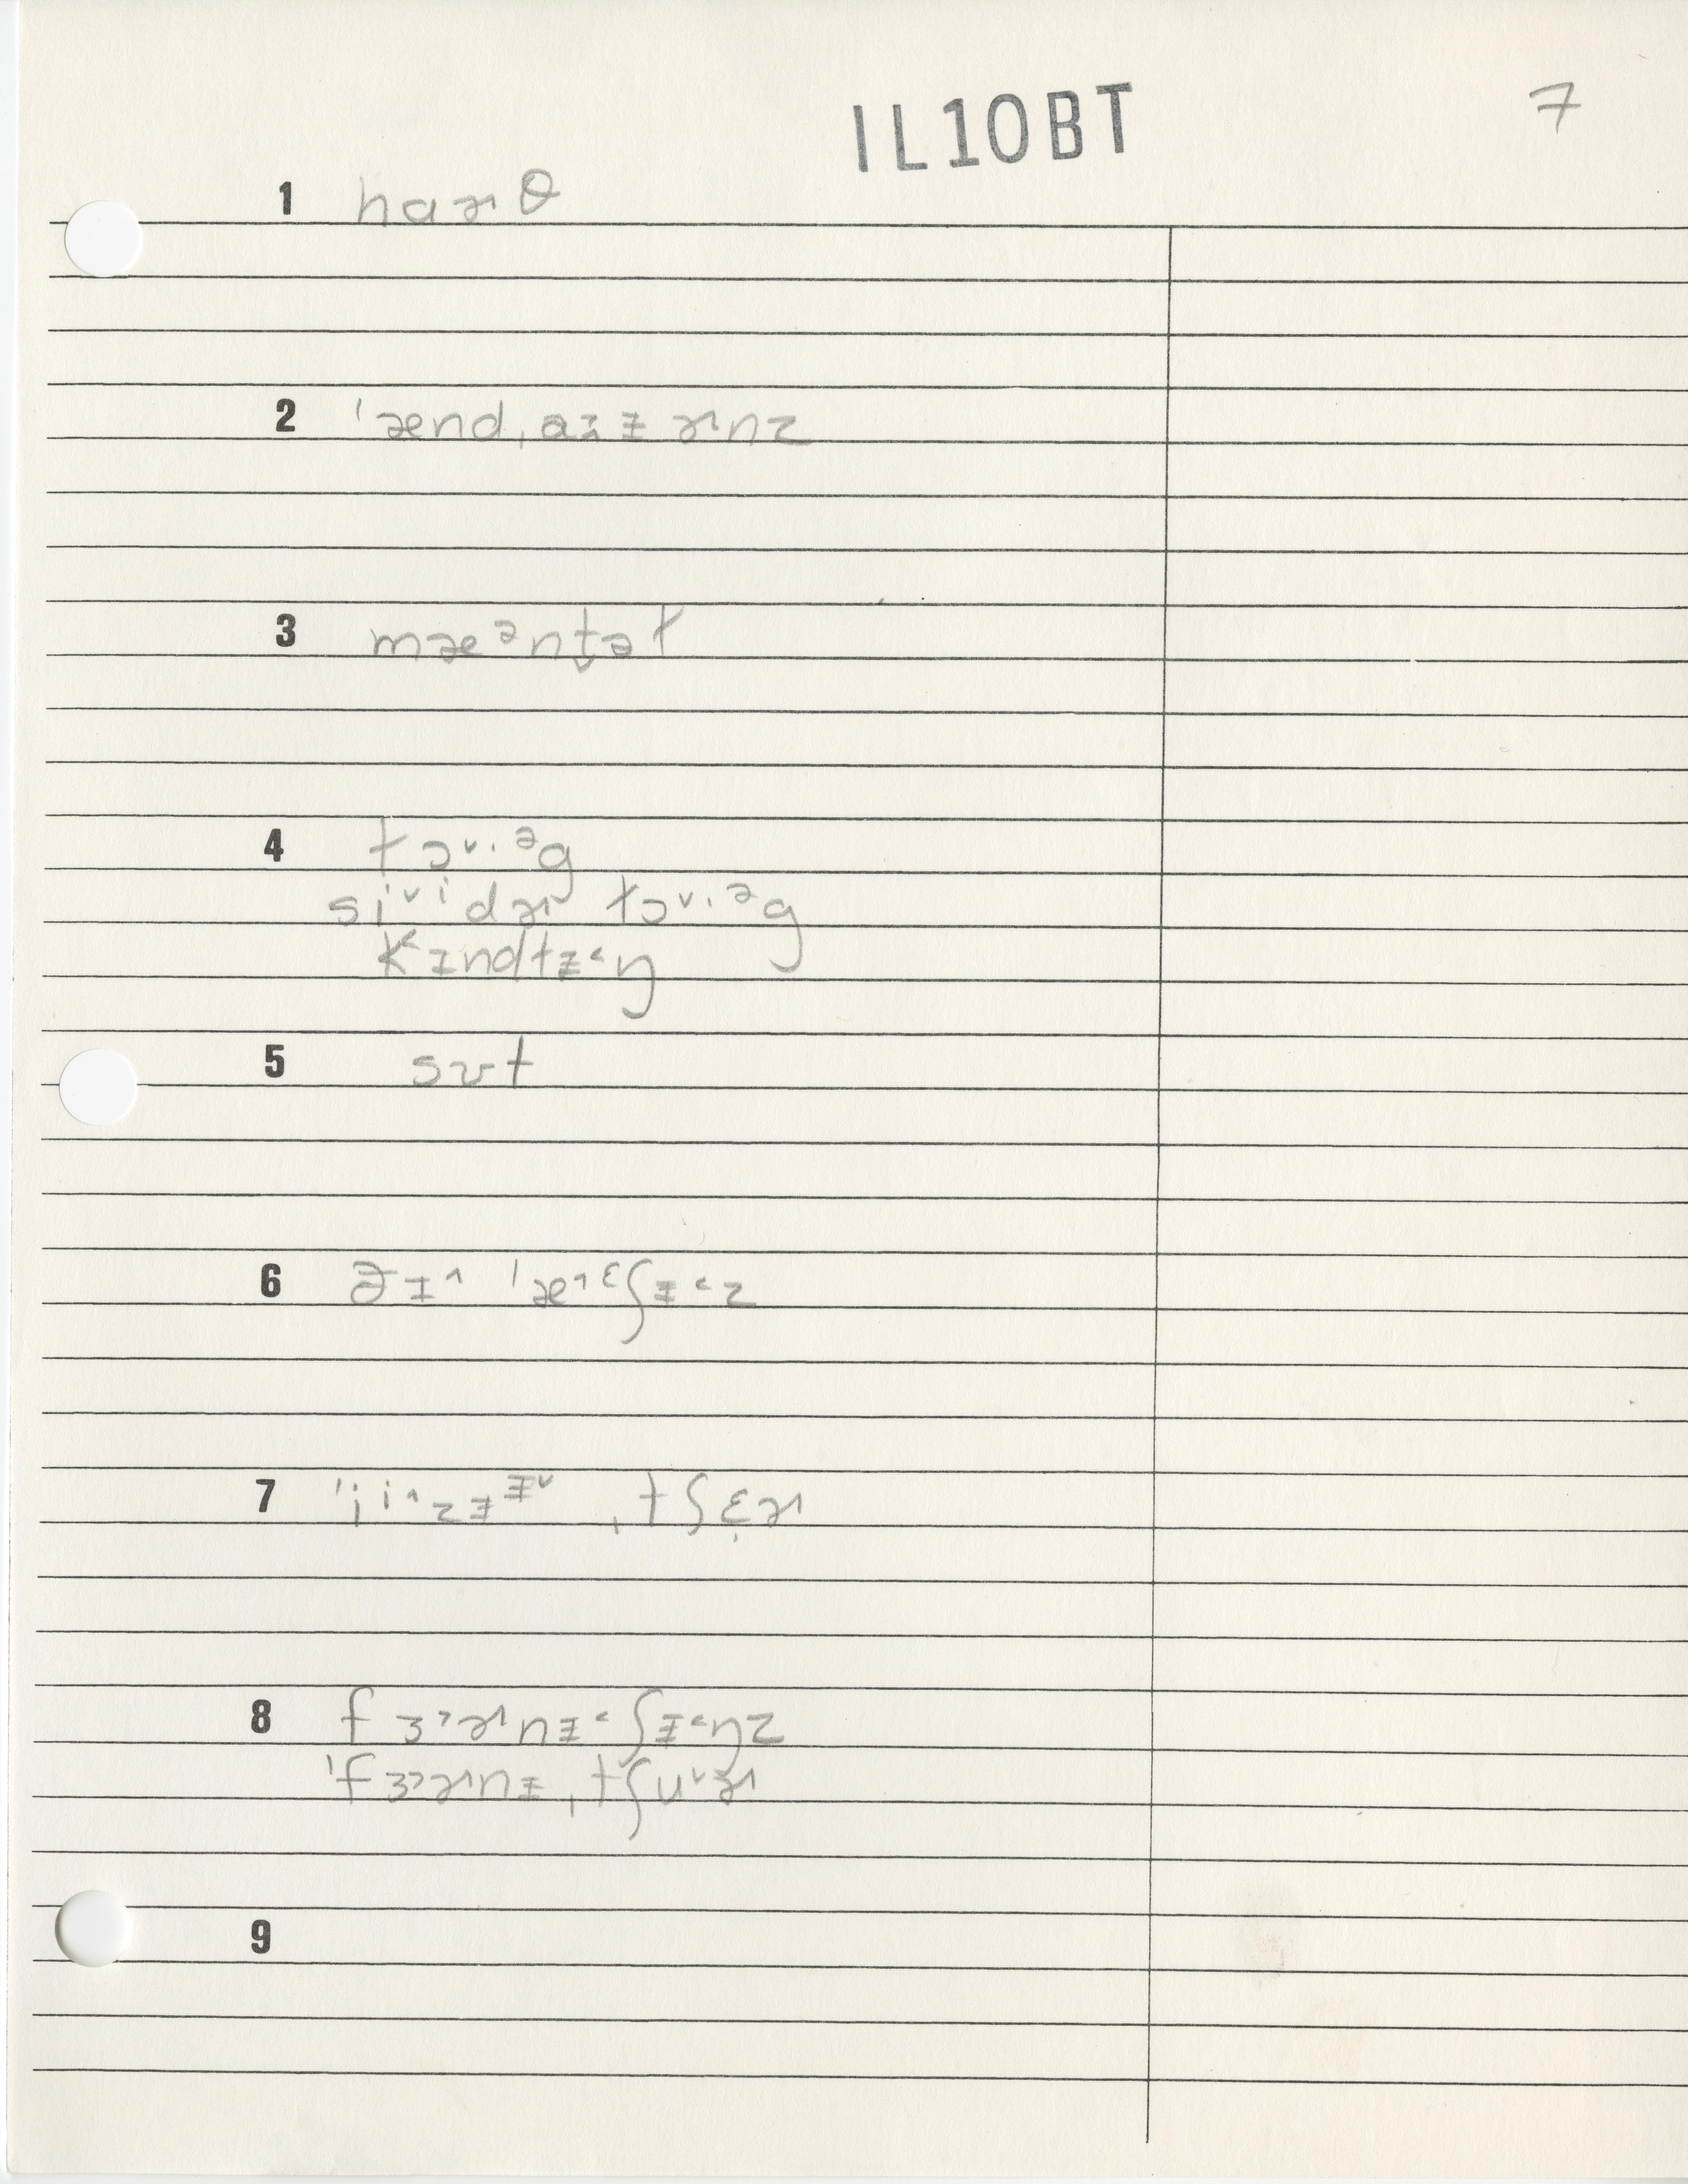 IL10BT 7
1 haɚθ
2 ˈænd,aɪɨɚnz
3 mæᵊnt̬əɫ
4 ɫɔ˅·ᵊg
si˅idɚ ɫɔ˅·ᵊg
k˂ɪndɫɨ˂ŋ
5 sʊt
6 ðɪ˄ ˈæ˄ᵋʃɨ˂z
7 ˈi˄zɨᶤ˅ ,tʃɛ̣ɚ
8 fɜ˃ɚnɨ˂ʃɨ˂ŋz
ˈfɜ˃ɚnɨ,tʃu˅ɚ
9